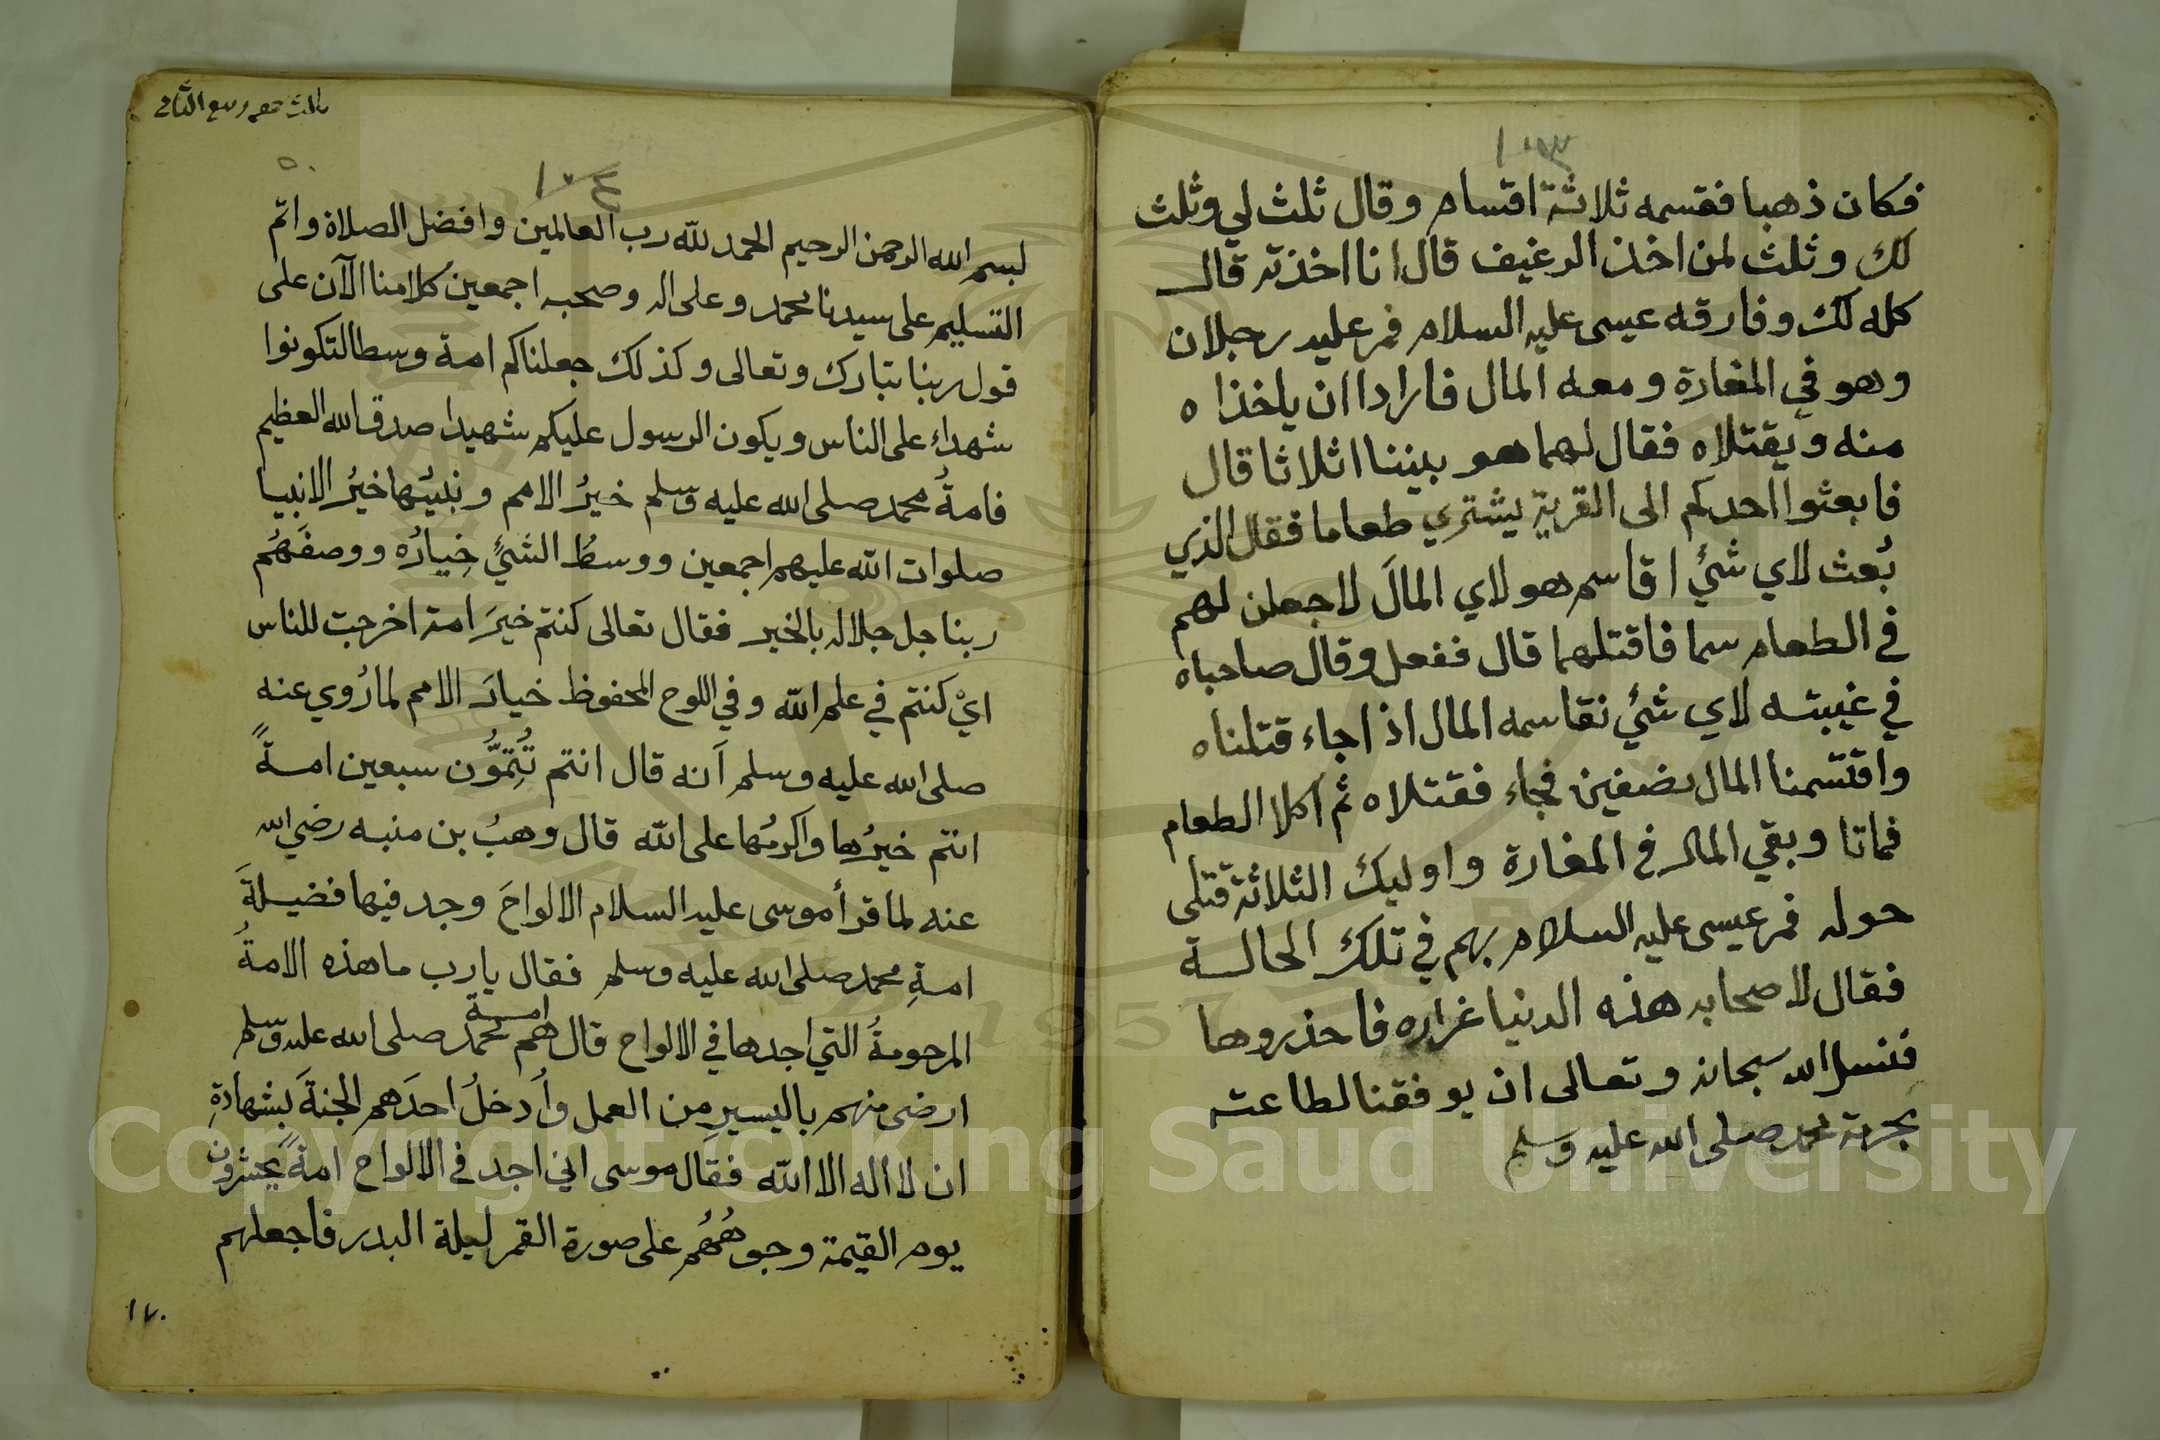 ١٠٣
فكان ذهبا فقسمه ثلاثة اقسام وقال ثلث لي وثلث
لك وثلث لمن اخذ الرغيف قال انا اخذته قال
كله لك وفارقه عيسى عليه السلام فمر عليه رجلان
وهو في المغارة ومعه المال فارادا ان ياخذاه
منه ويقتلاه فقال لهما هو بيننا اثلاثا قال
فابعثوا احدكم الى القرية يشتري طعاما فقال الذي
بُعث لاي شئ اقاسم هولاي المالَ لاجعلن لهم
في الطعام سما فاقتلهما قال ففعل وقال صاحباه
في غيبته لاي شئ نقاسمه المال اذا جاء قتلناه
واقتسمنا المال نصفين فجاء فقتلاه ثم اكلا الطعام
فماتا وبقي المال في المغارة واوليك الثلاثة قتلى
حوله فمر عيسى عليه السلام بهم في تلك الحالة
فقال لاصحابه هذه الدنيا غراره فاحذروها
فنسل الله سبحانه وتعالى ان يوفقنا لطاعته
بحرمة محمد صلى الله عليه وسلم
ثالث جمعه ربيع الثاني
٥٠
١٠٤
لبسم الله الرحمن الرحيم الحمد لله رب العالمين وافضل الصلاة واتم
التسليم على سيدنا محمد وعلى اله وصحبه اجمعين كلامنا الآن على
قول ربنا تبارك وتعالى وكذلك جعلناكم امة وسطا لتكونوا
شهداء على الناس ويكون الرسول عليكم شهيدا صدق الله العظيم
فامةُ محمد صلى الله عليه وسلم خيرُ الامم ونبيُها خيرُ الانبيا
صلوات الله عليهم اجمعين ووسطُ الشئِ خيارُه ووصفَهُم
ربنا جل جلاله بالخير فقال تعالى كنتم خيرَ امة اخرجت للناس
ايْ كنتم في علم الله وفي اللوح المحفوظ خيارَ الامم لما رُوي عنه
صلى الله عليه وسلم اَنه قال انتم تُتِمُّون سبعين امةً
انتم خيرُها واكرمُها على الله قال وهبُ بن منبه رضي الله
عنه لما قرأ موسى عليه السلام الالواحَ وجد فيها فضيلةَ
امةِ محمد صلى الله عليه وسلم فقال يا رب ما هذه الامةُ
المرحومةُ التي اجدها في الالواح قال هم امة محمد صلى الله عليه وسلم
ارضى منهم باليسيرِ مِن العمل واُدخلُ احدَهم الجنةَ بشهادةِ
ان لا اله الا الله فقال موسى اني اجد في الالواح امةً يحشرون
يوم القيمة وجوهُهُم على صورة القمر ليلة البدر فاجعلهم
١٧٠
1957
Copyright © King Saud University